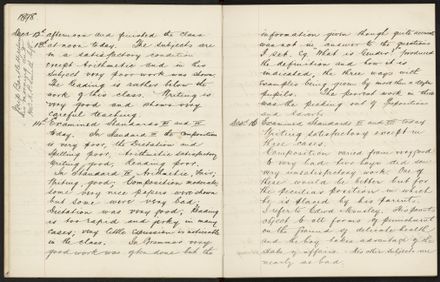 1898.
Sept 13th afternoon and finished the class
at noon today. The subjects are
in a satisfactory condition
except Arithmetic and in this
subject very poor work was shown
The Reading is rather below the
work of this class. Writing is
very good and shows very
careful teaching
14th Examined Standards III and IV
today. In Standard III the Composition
is very poor, the Dictation and
Spelling poor, Arithmetic satisfactory
Writing good, Reading poor.
In Standard IV Arithmetic, Fair;
Writing, good; Composition, moderate,
some very nice papers were done
but some were very bad;
Dictation was very good; Reading
is too rapid and jerky in many
cases; very little expression is noticeable
in the class. In Grammar very
good work was often done but the
information given though quite accurate
was not in answer to the questions
I set. Eg. What is Gender? produced
the definition and how it is
indicated, the three ways with
examples being given by more than a dozen
pupils. The poorest work in this
was the picking out of Preposition
and
Sept. 16 Examined Standards
Writing satisfactory except in
three cases.
Composition varied from very good
to very bad two boys did some
very unsatisfactory work. One of
these would be better but for
the peculiar position in which
he is placed by his parents.
I refer to His parents
object to all forms of punishment
on the ground of delicate health
and the boy takes advantage of the
state of affairs. His other subjects are
nearly as bad.